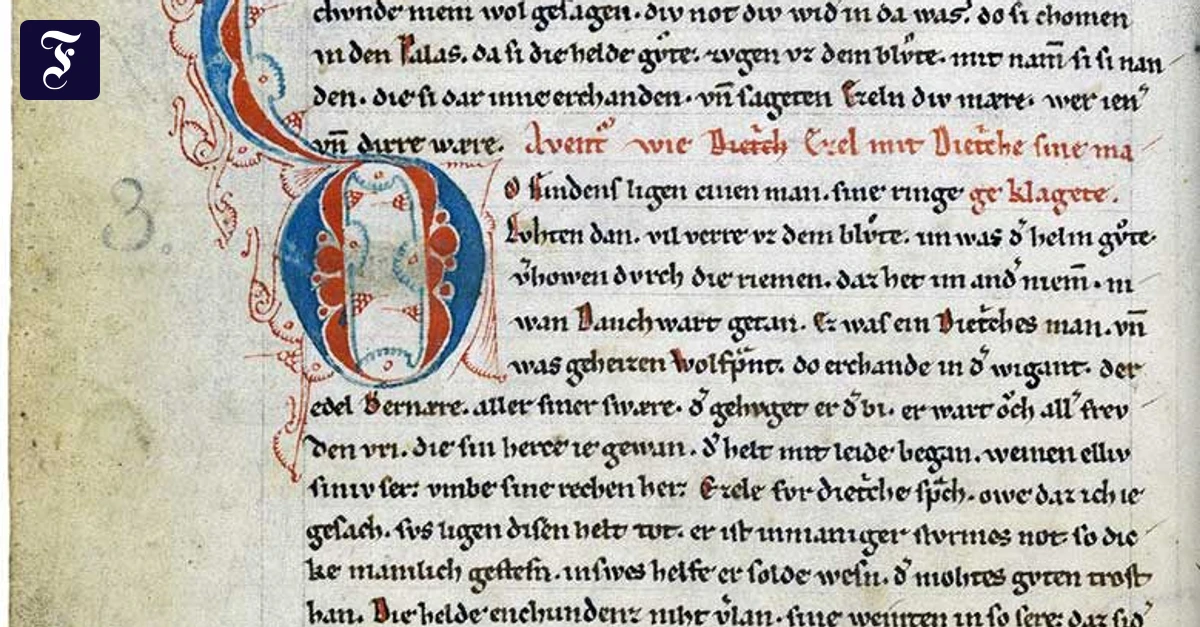 F
chvnde niem wol gesagen. div not div wid in da was. do si chomen
in den Palas. da si die helde gvͦte. zvgen vz dem blvͦte. mit nam̄ si si nan
den. die si dar inne erchanden. vn̄ sageten Ezeln div mære. wer ien
vn̄ dirre wære. Avent wie Dietͥch Ezel mit Dietͥche sine ma
O Sindens ligen einen man. sine ringe ge klagete.
Lvhten dan. vil verre vz dem blvͦte. im was d᾽ helm gvͦte
v᾽howen dvrch die riemen. daz het im and᾽ niem̄. ni
wan Danchwart getan. Ez was ein Dietͥches man. vn̄
was geheizen Wolfpͥnt. do erchande in d᾽ wigant. der
3.
edel Bernære. aller siner swære. d᾽ gehvget er d᾽ bi. er wart oͮch all᾽ frev
den vri. die sin herce ie gewan. d᾽ helt mit leide began. weinen elliv
siniv ser. vmbe sine rechen her. Ezele for dietͥche spͣch. owe daz ich ie
gesach. svs ligen disen helt tot. er ist in maniger stvrmes not so dic
ke manlich gesten. in swes helfe er solde wesn. d᾽ mohtes gvten trost
han. Die helde enchvndenz niht v᾽lan. sine weinten in so sere. daz sid᾽